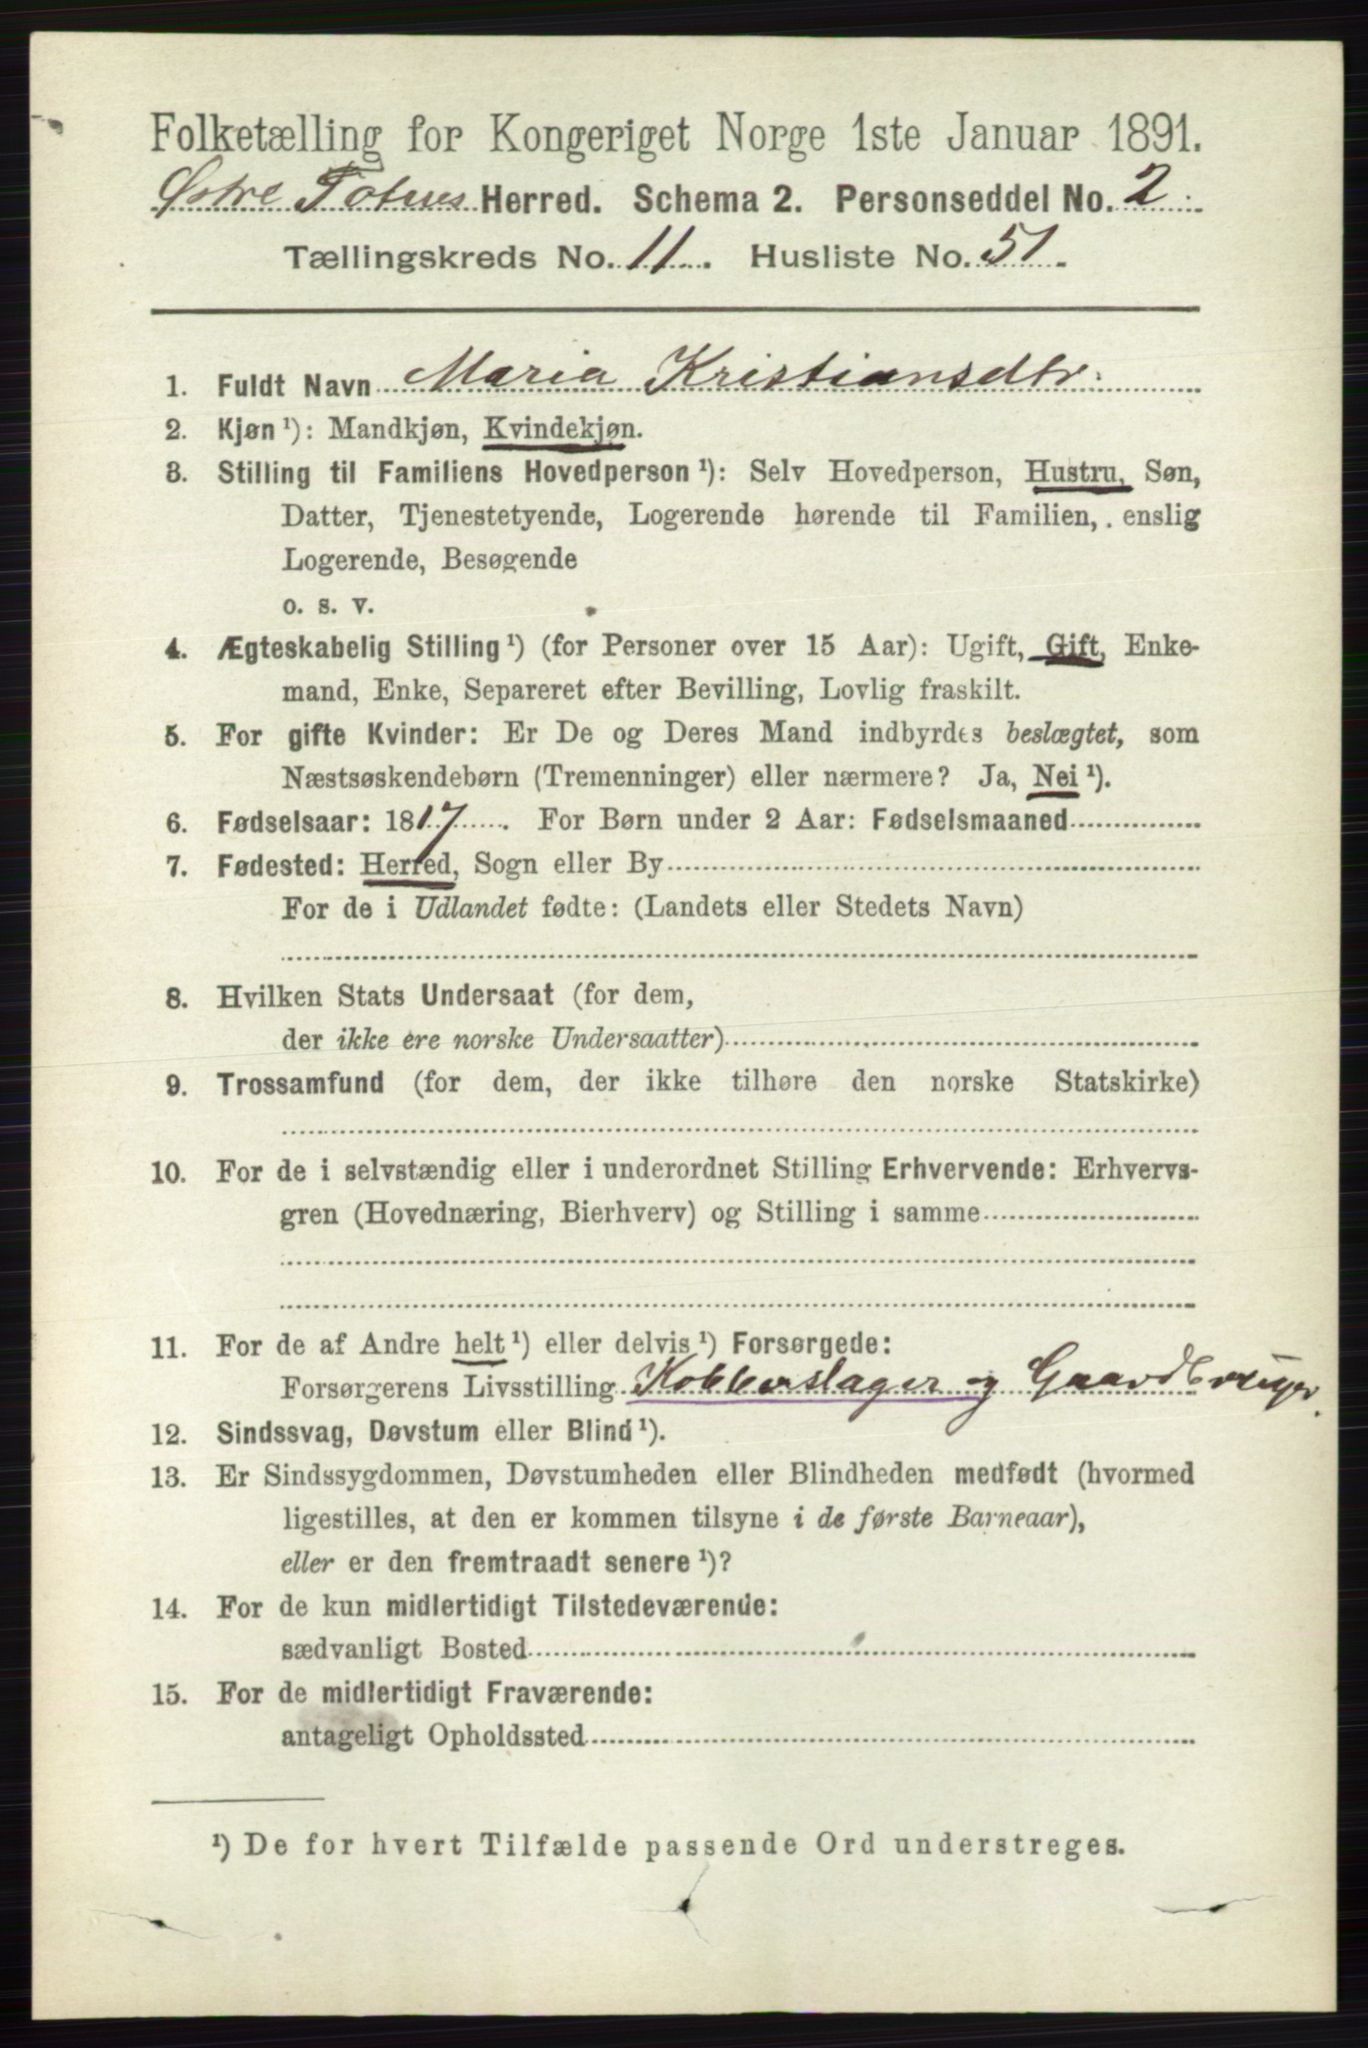 Folketælling for Kongeriget Norge 1ste Januar 1891.
Østre Totens Herred. Schema 2. Personseddel No. 2
Tællingskreds No. 11. Husliste No. 51.
1. Fuldt Navn Maria Kristiansdtr.
2. Kjøn ¹): Mandkjøn, Kvindekjøn.
3. Stilling til Familiens Hovedperson ¹): Selv Hovedperson, Hustru, Søn,
Datter, Tjenestetyende, Logerende hørende til Familien, enslig
Logerende, Besøgende
o. s. v.
4. Ægteskabelig Stilling ¹) (for Personer over 15 Aar): Ugift, Gift, Enke-
mand, Enke, Separeret efter Bevilling, Lovlig fraskilt.
5. For gifte Kvinder: Er De og Deres Mand indbyrdes beslægtet, som
Næstsøskendebørn (Tremenninger) eller nærmere? Ja, Nei ¹).
6. Fødselsaar: 1817. For Børn under 2 Aar: Fødselsmaaned
7. Fødested: Herred, Sogn eller By
For de i Udlandet fødte: (Landets eller Stedets Navn)
8. Hvilken Stats Undersaat (for dem,
der ikke ere norske Undersaatter)
9. Trossamfund (for dem, der ikke tilhøre den norske Statskirke)
10. For de i selvstændig eller i underordnet Stilling Erhvervende: Erhvervs-
gren (Hovednæring, Bierhverv) og Stilling i samme
11. For de af Andre helt ¹) eller delvis ¹) Forsørgede:
Forsørgerens Livsstilling Kobberslager og Gaardbruger.
12. Sindssvag, Døvstum eller Blind ¹).
13. Er Sindssygdommen, Døvstumheden eller Blindheden medfødt (hvormed
ligestilles, at den er kommen tilsyne i de første Barneaar),
eller er den fremtraadt senere ¹)?
14. For de kun midlertidigt Tilstedeværende:
sædvanligt Bosted
15. For de midlertidigt Fraværende:
antageligt Opholdssted
¹) De for hvert Tilfælde passende Ord understreges.